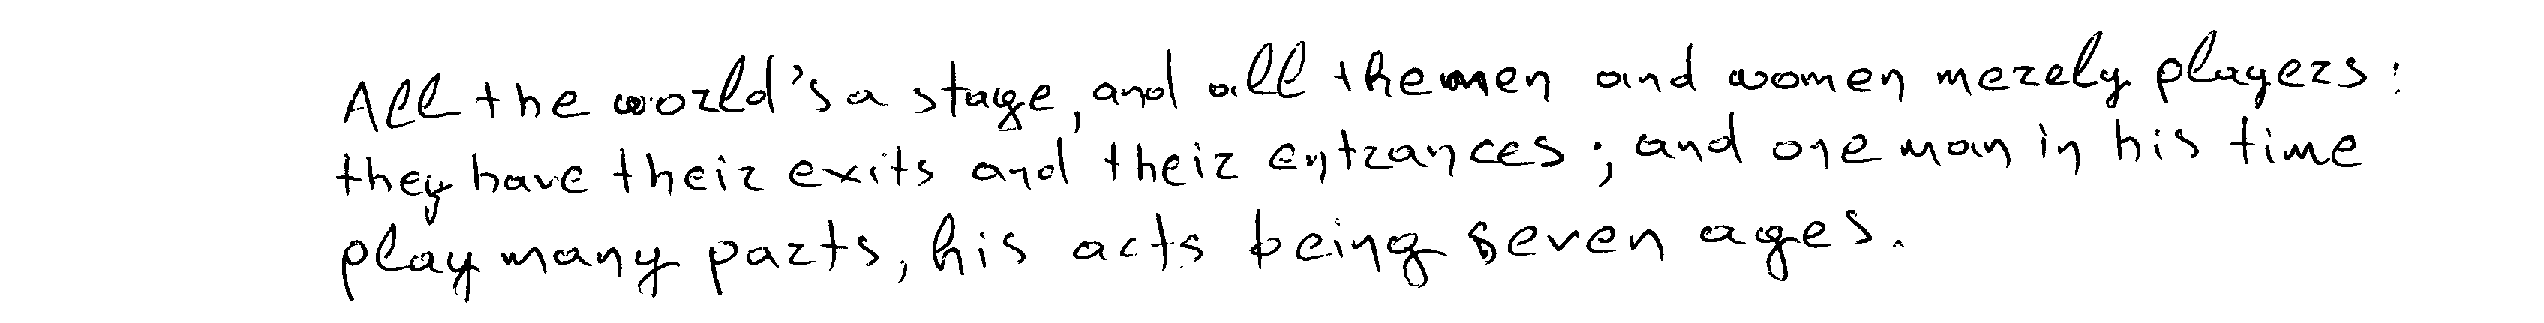 All the world's a stage, and all the men and women merely players:
they have their exits and their entrances; and one man in his time
play many parts, his acts being seven ages.